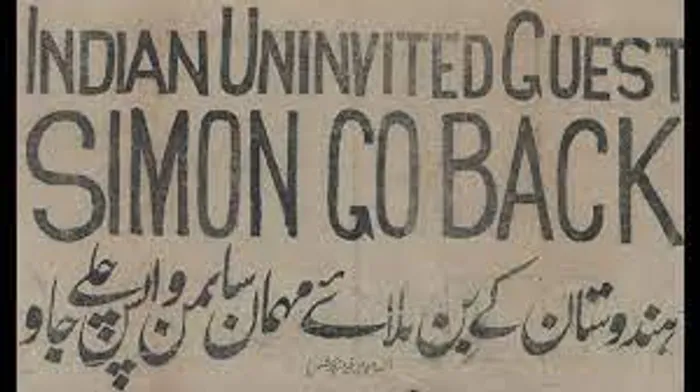 INDIAN UNINVITED GUEST
SIMON GO BACK
ہندوستان کے بن بلائے مہمان سائمن واپس چلے جاو